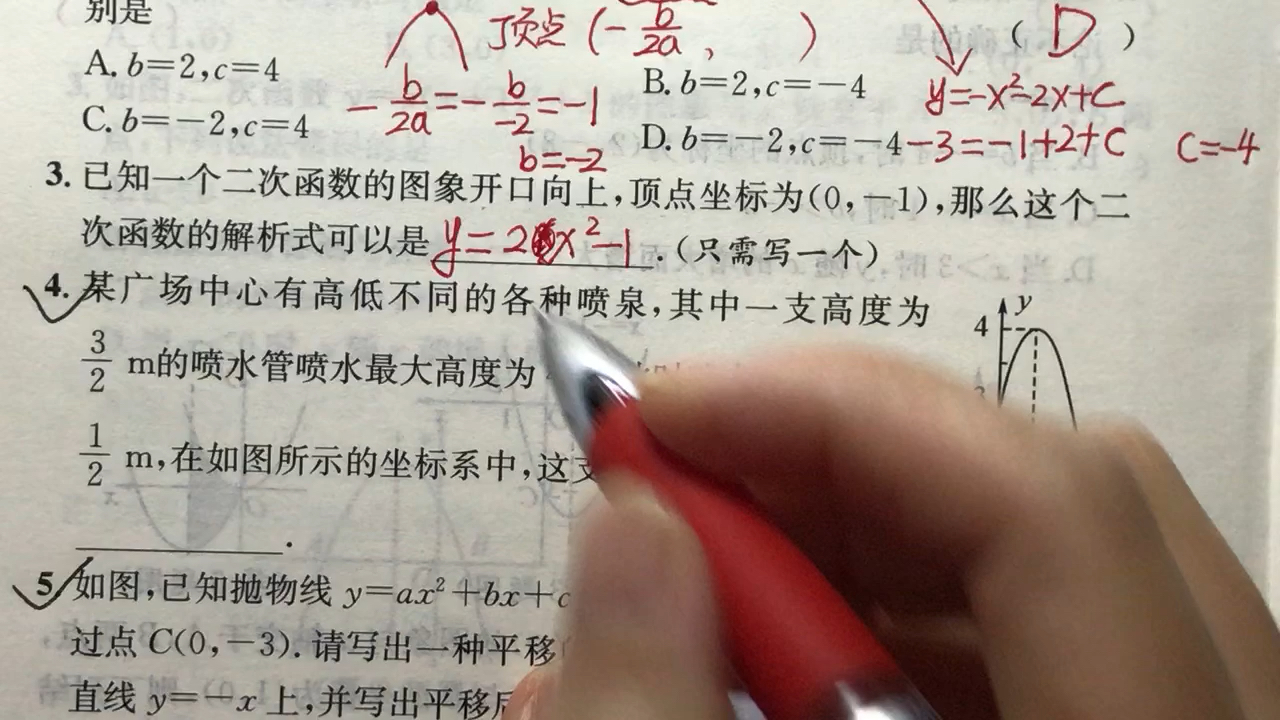 别是
顶点 (-b/2a, )
( D )
A. b=2,c=4
B. b=2,c=-4
y=-x²-2x+c
-b/2a=-b/-2=-1
C. b=-2,c=4
D. b=-2,c=-4
-3=-1+2+c
c=-4
b=-2
3. 已知一个二次函数的图象开口向上,顶点坐标为(0,-1),那么这个二
次函数的解析式可以是 y=2x²-1 .(只需写一个)
4. 某广场中心有高低不同的各种喷泉,其中一支高度为
3/2 m的喷水管喷水最大高度为
1/2 m,在如图所示的坐标系中,这支
.
y
4
5 如图,已知抛物线 y=ax²+bx+c
过点 C(0,-3). 请写出一种平移
直线 y=-x 上,并写出平移后